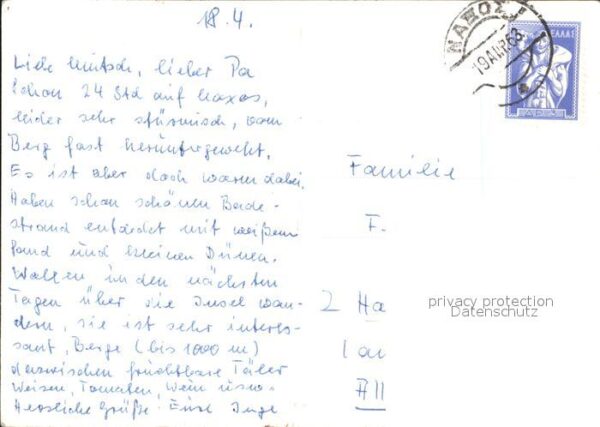 18.4.
Liebe Mutsch, lieber Pa
Schon 24 Std auf Naxos,
leider sehr stürmisch, vom
Berg fast heruntergeweht.
Es ist aber doch warm dabei.
Haben schon schönen Bade-
strand entdeckt mit weißem
Sand und kleinen Dünen.
Wollen in den nächsten
Tagen über die Insel wan-
dern, sie ist sehr interes-
sant, Berge (bis 1000 m)
dazwischen fruchtbare Täler
Weizen, Tomaten, Wein usw.
Herzliche Grüße Eure Inge
ΝΑΞΟΣ
19 ΑΠΡ 63
ΕΛΛΑΣ
Familie
F.
2 Ha
1 au
privacy protection
Datenschutz